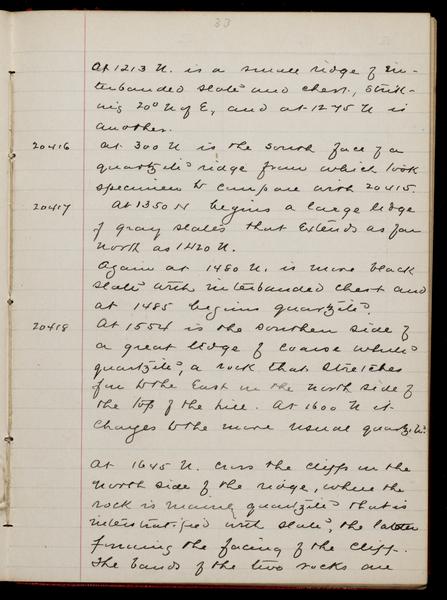 33
At 1213 N. is a small ridge of in-
terbanded slate and chert, strik-
ing 20° N of E, and at 1275 N is
another.
20416 At 300 N is the south face of a
quartzite ridge from which took
specimen to compare with 20415.
20417 At 1350 N begins a large ledge
of gray slates that extends as far
north as 1420 N.
Again at 1480 N. is more black
slate with interbanded chert and
at 1485 begins quartzite.
20418 At 1554 is the southern side of
a great ledge of coarse white
quartzite, a rock that stretches
far to the East on the north side of
the top of the hill. At 1600 N it
changes to the more usual quartzite.
At 1645 N. cross the cliffs on the
north side of the ridge, where the
rock is mainly quartzite that is
interstratified with slate, the latter
forming the facing of the cliff.
The bands of the two rocks are